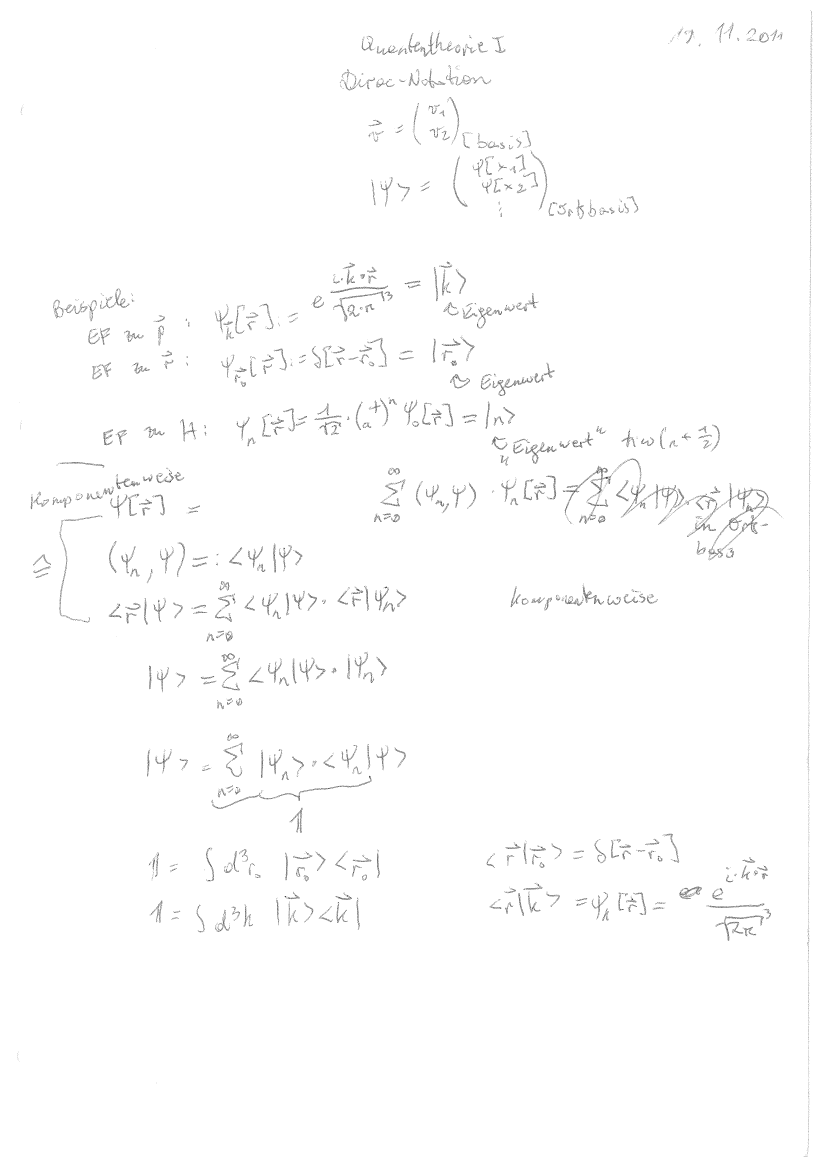 19. 11. 2011
Quantentheorie I
Dirac-Notation
v⃗ = (v₁ v₂)[basis]
|Ψ> = (Ψ[x1] Ψ[x2] ⋮)[Ortsbasis]
Beispiele:
EF zu p⃗ : Ψ_k⃗[r⃗] := e^(i·k⃗∘r⃗)/√(2·π)³ = |k⃗>
↖ Eigenwert
EF zu r⃗ : Ψ_r⃗₀[r⃗] := δ[r⃗-r⃗₀] = |r⃗₀>
↖ Eigenwert
EF zu H: Ψ_n[r⃗] = 1/√2 · (a⁺)ⁿ Ψ₀[r⃗] = |n>
↖ „Eigenwert" ħω(n+1/2)
Komponentenweise
Ψ[r⃗] = ∑_{n=0}^∞ (Ψ_n,Ψ) · Ψ_n[r⃗] = ∑_{n=0}^∞ <Ψ_n|Ψ> · <r⃗|Ψ_n>
in Orts-
basis
≙ (Ψ_n, Ψ) =: <Ψ_n|Ψ>
<r⃗|Ψ> = ∑_{n=0}^∞ <Ψ_n|Ψ> · <r⃗|Ψ_n> komponentenweise
|Ψ> = ∑_{n=0}^∞ <Ψ_n|Ψ> · |Ψ_n>
|Ψ> = ∑_{n=0}^∞ |Ψ_n> · <Ψ_n|Ψ>
𝟙
𝟙 = ∫ d³r₀ |r⃗₀> <r⃗₀| <r⃗|r⃗₀> = δ[r⃗-r⃗₀]
𝟙 = ∫ d³k |k⃗> <k⃗| <r⃗|k⃗> = Ψ_k[r⃗] = e^(i·k⃗∘r⃗)/√(2π)³